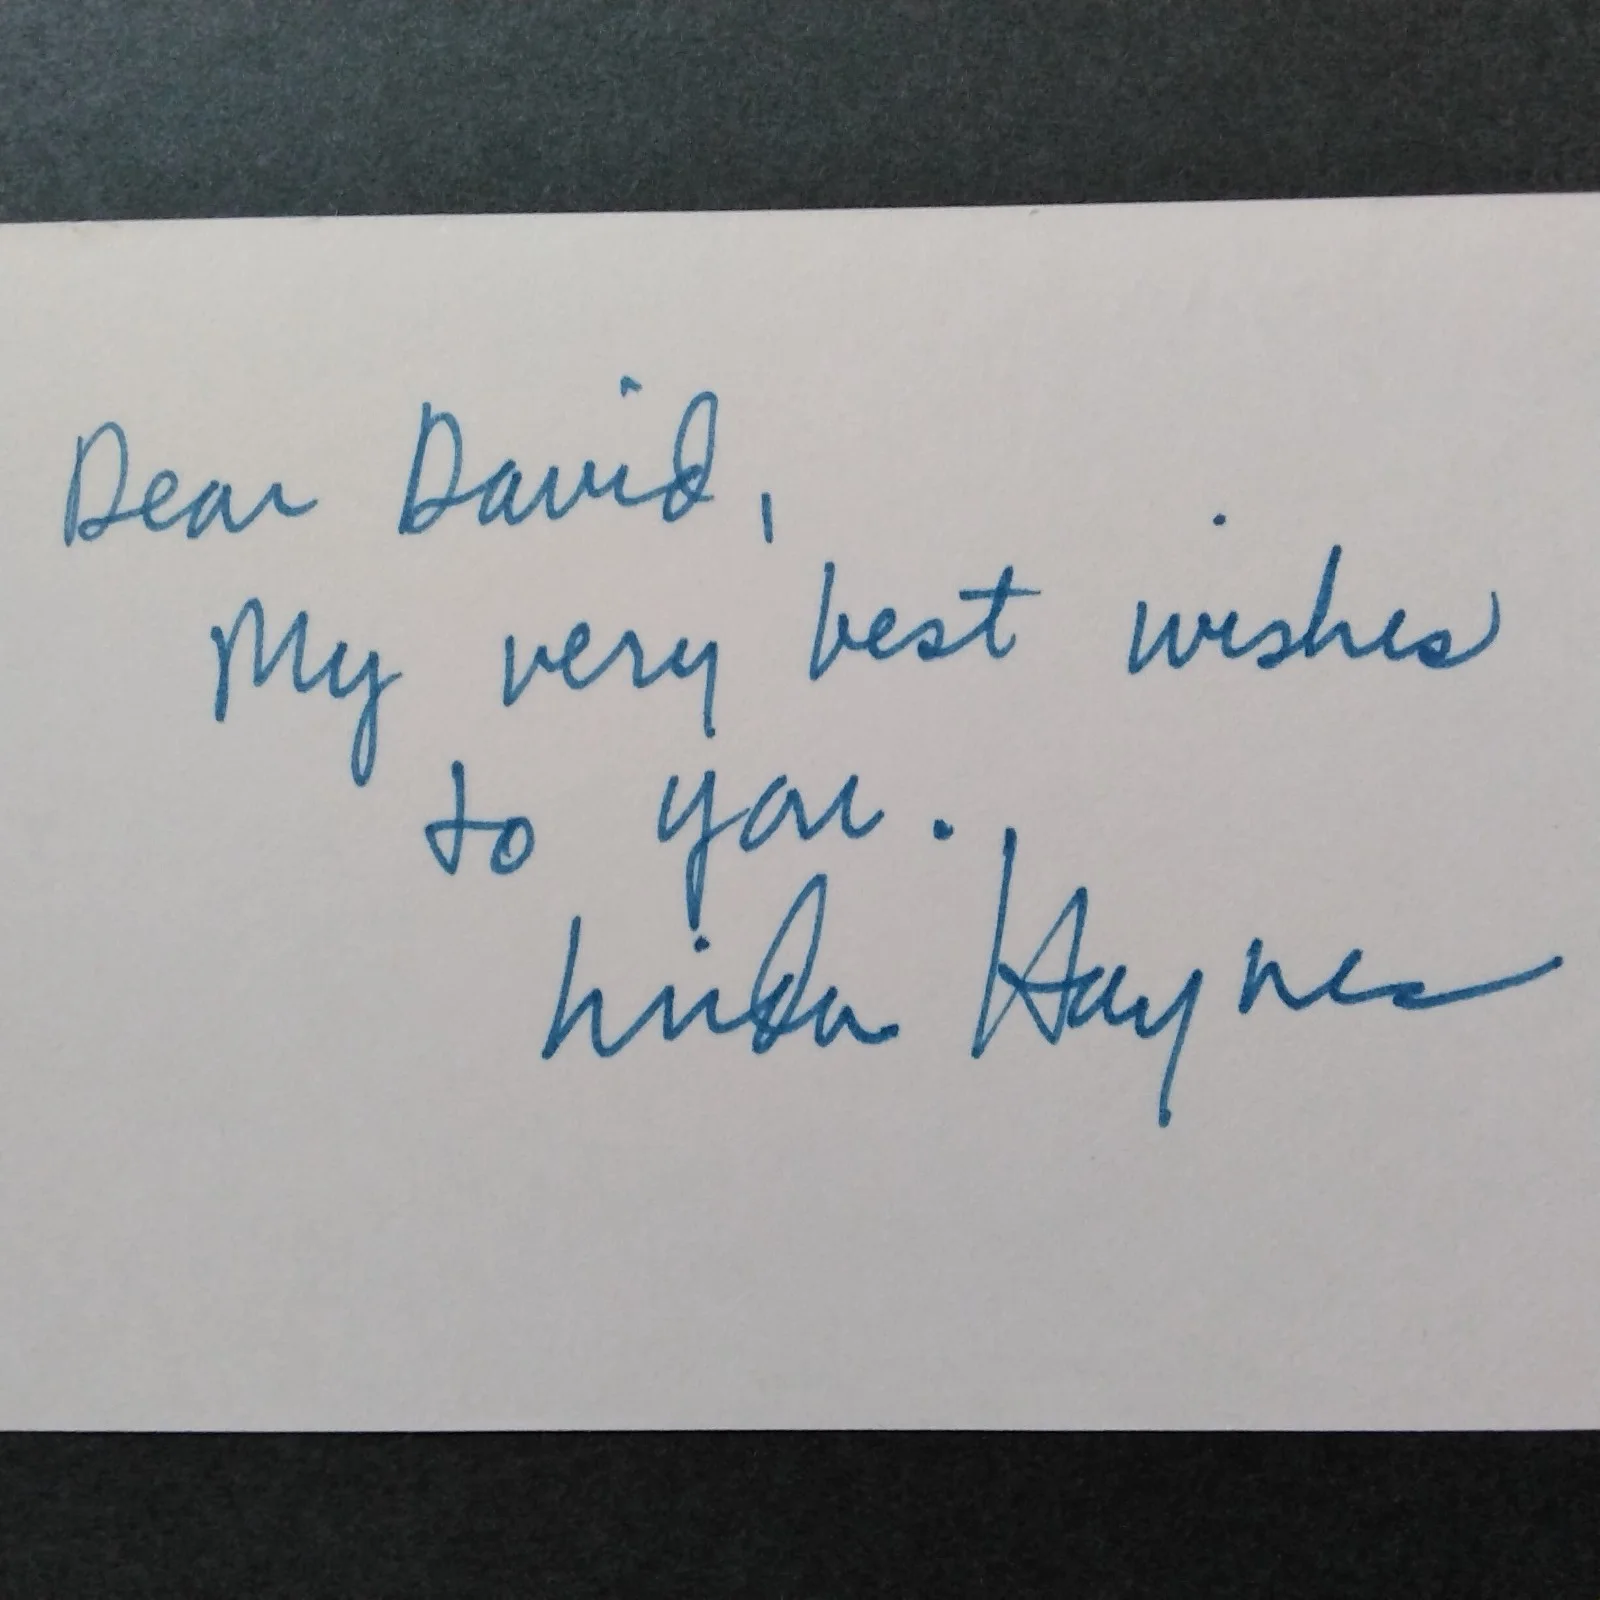 Dear David,
My very best wishes
to you.
Linda Haynes